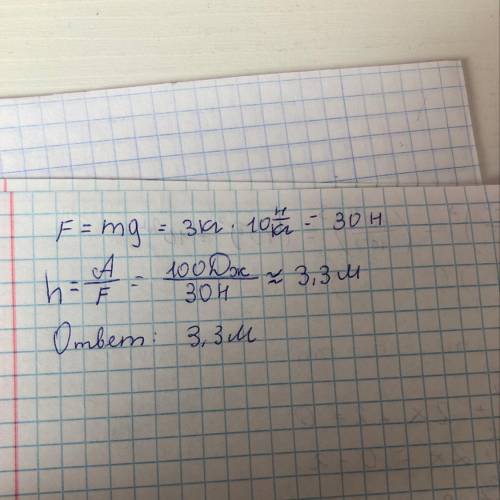 F = mg = 3кг · 10 Н/кг = 30 Н
h = A/F = 100Дж/30Н ≈ 3,3 м
Ответ: 3,3 м